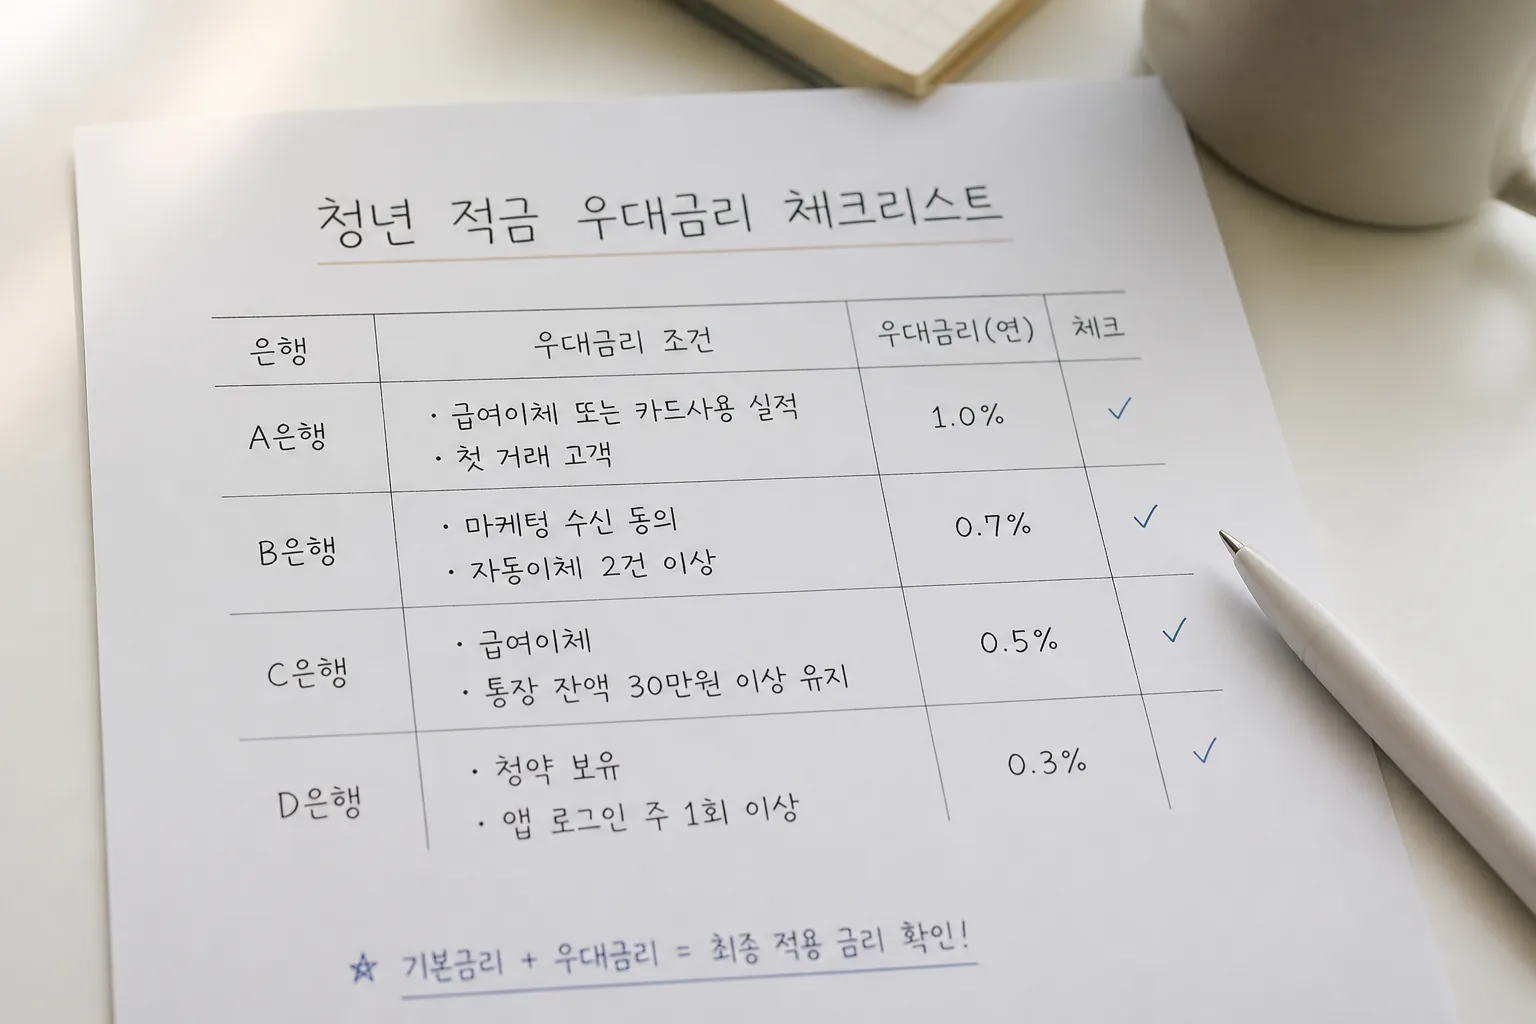 청년 적금 우대금리 체크리스트
은행 우대금리 조건 우대금리(연) 체크
A은행 · 급여이체 또는 카드사용 실적 1.0% ✓
· 첫 거래 고객
B은행 · 마케팅 수신 동의 0.7% ✓
· 자동이체 2건 이상
C은행 · 급여이체 0.5% ✓
· 통장 잔액 30만원 이상 유지
D은행 · 청약 보유 0.3% ✓
· 앱 로그인 주 1회 이상
☆ 기본금리 + 우대금리 = 최종 적용 금리 확인!